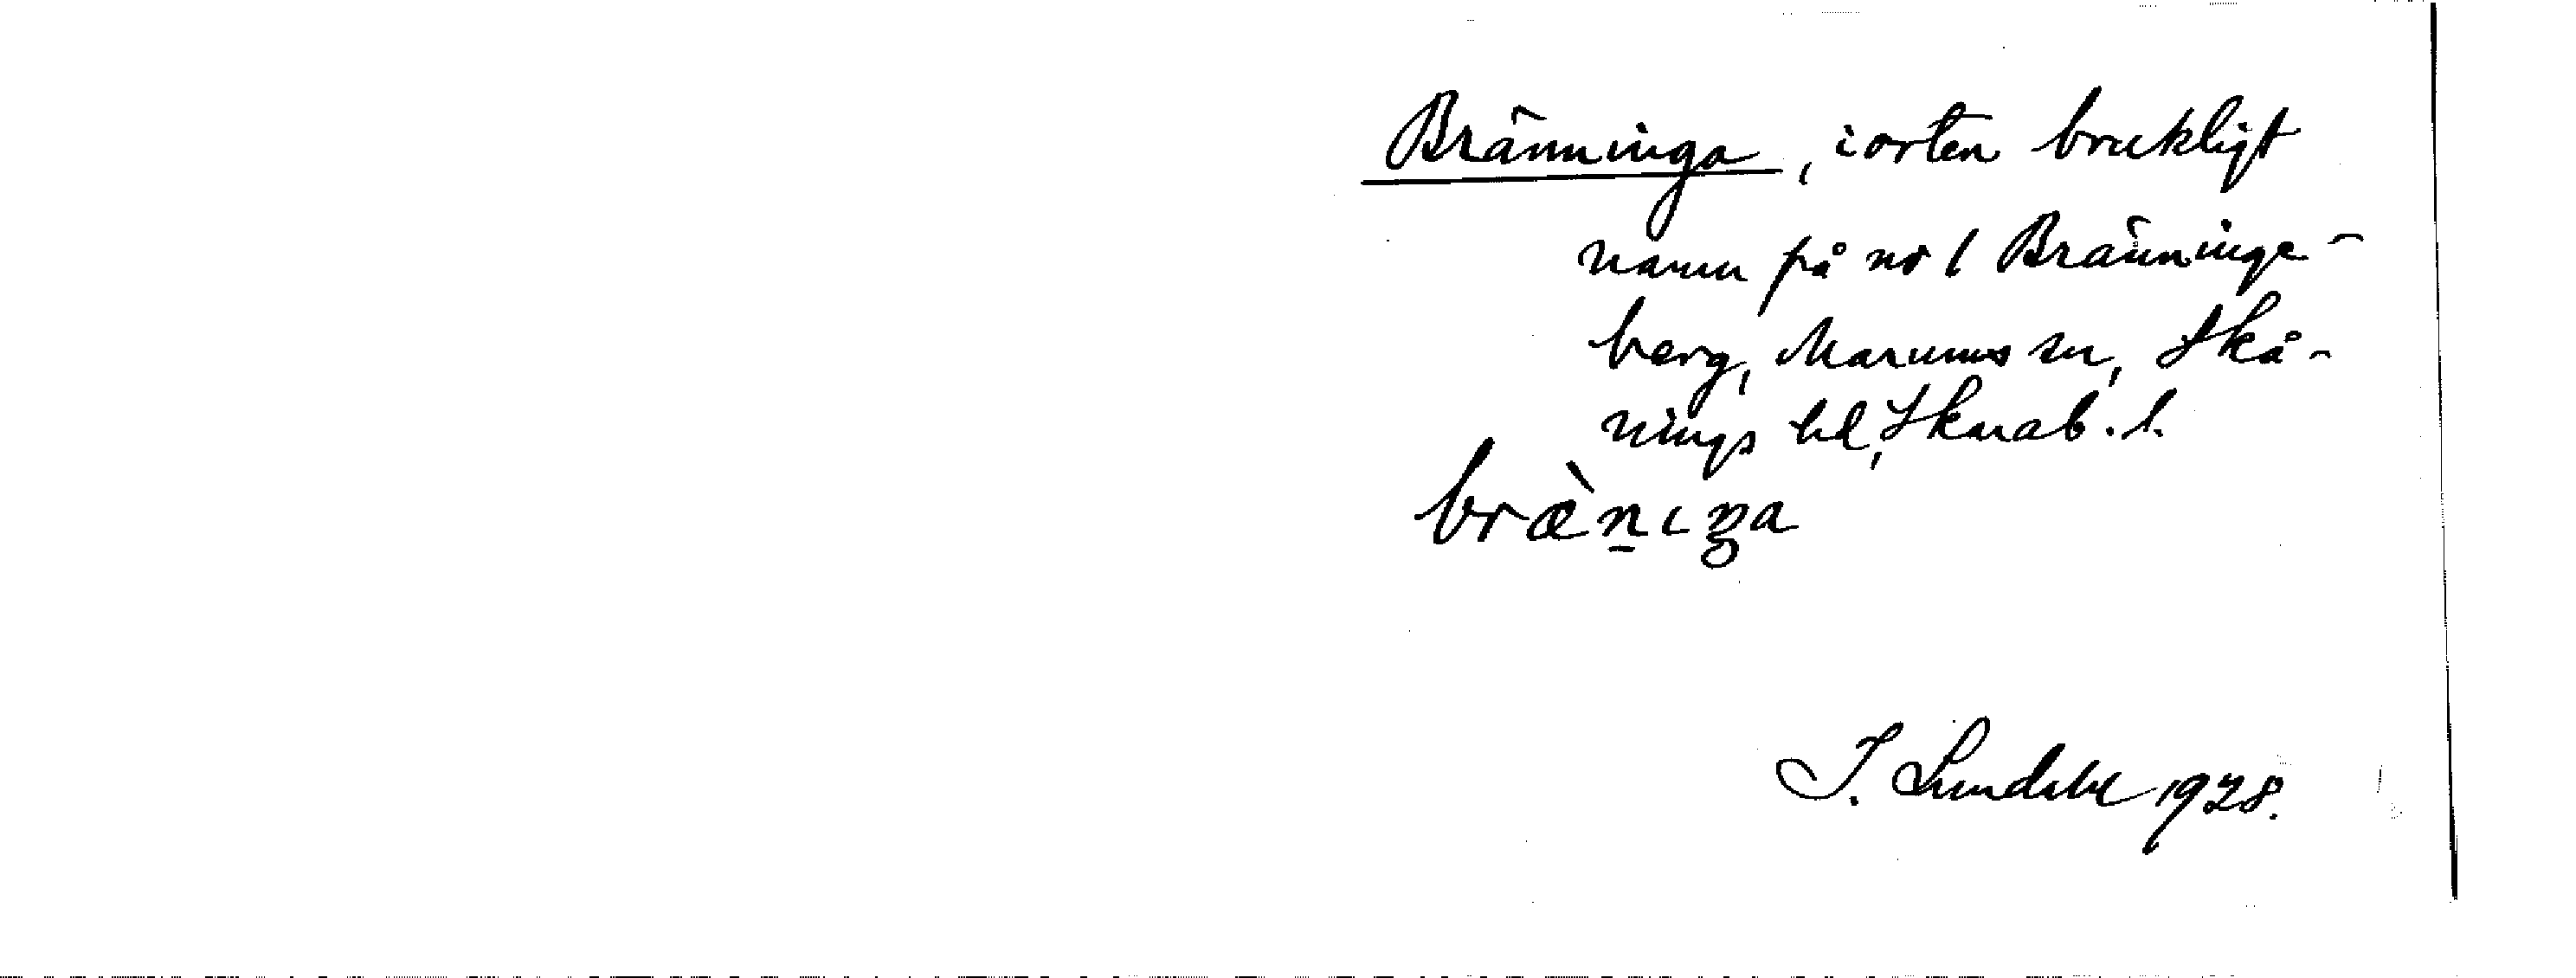 Bränninga, i orten brukligt
namn på nr 1 Bränninge-
berg, Marums sn, Skå-
nings hd, Skarab. l.
bræ̀n̲ıŋa
I. Lundahl 1928.